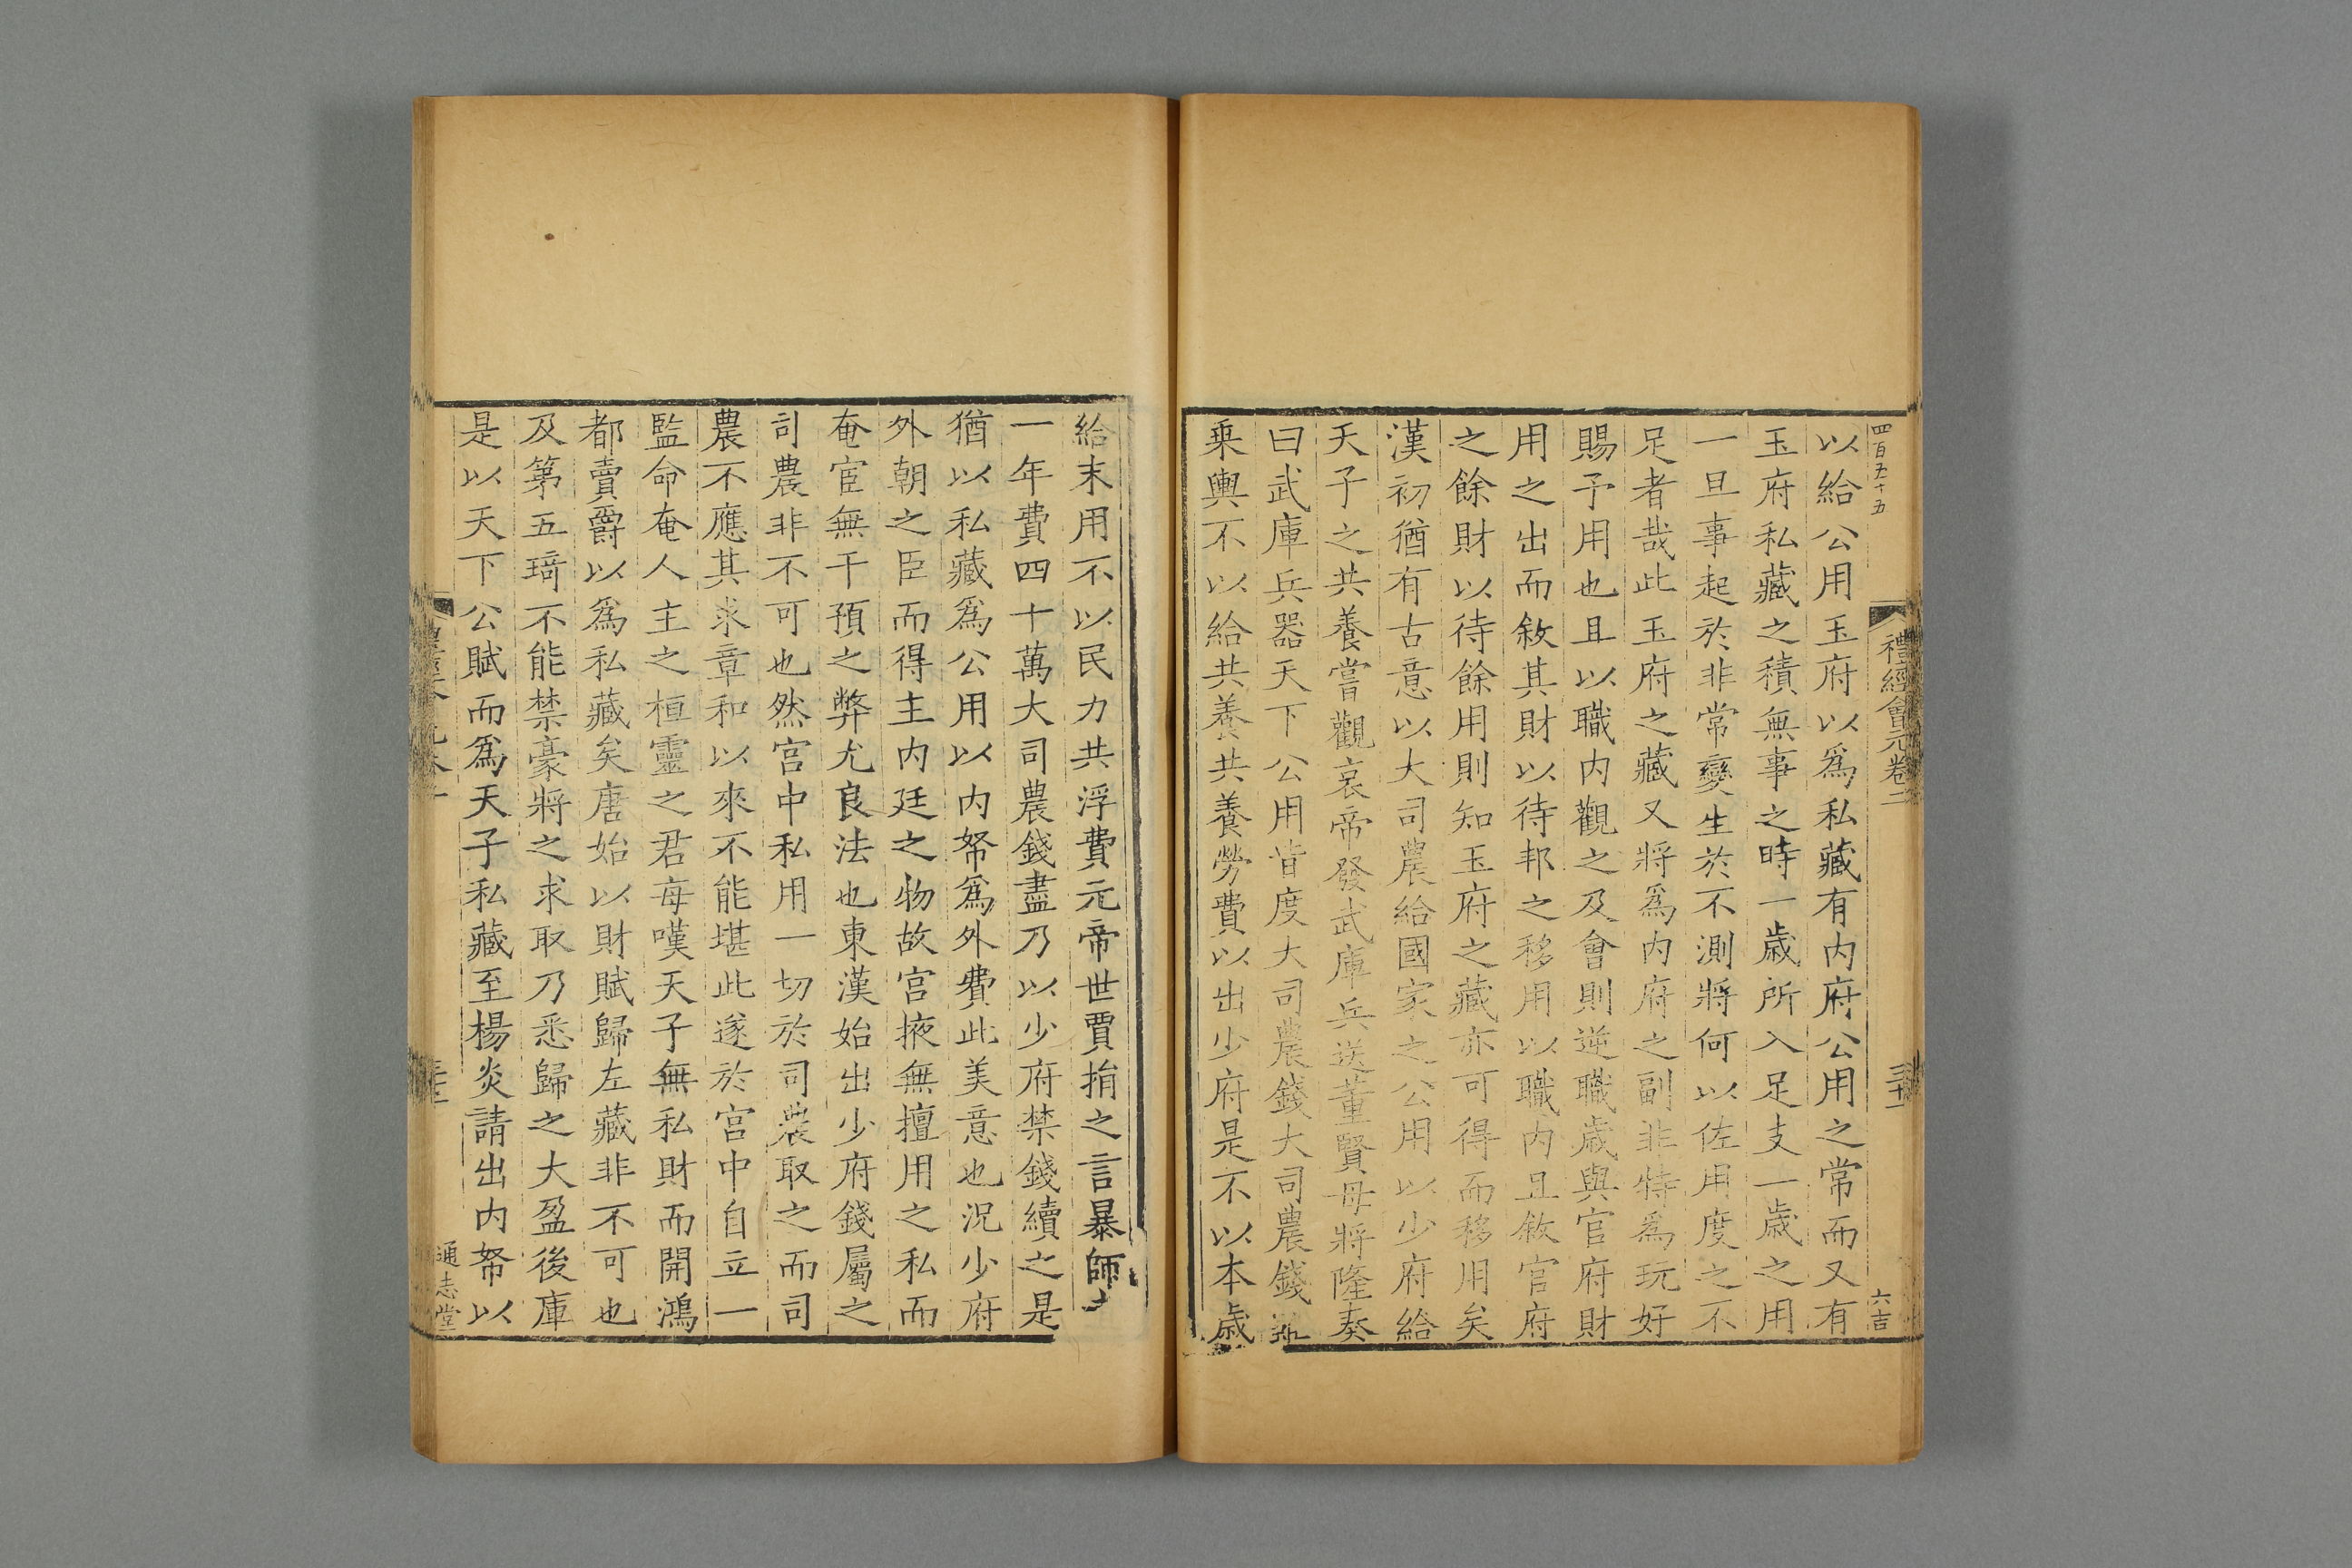 四百五十五
禮經會元卷二
六吉
以給公用玉府以爲私藏有内府公用之常而又有
玉府私藏之積無事之時一歲所入足支一歲之用
一旦事起於非常變生於不測將何以佐用度之不
足者哉此玉府之藏又將爲内府之副非特爲玩好
賜予用也且以職内觀之及會則逆職歲與官府財
用之出而敘其財以待邦之移用以職内且敘官府
之餘財以待餘用則知玉府之藏亦可得而移用矣
漢初猶有古意以大司農給國家之公用以少府給
天子之共養嘗觀哀帝發武庫兵送董賢母將隆奏
曰武庫兵器天下公用皆度大司農錢大司農錢
乗輿不以給共養共養勞費以出少府是不以本歲
給末用不以民力共浮費元帝世賈捐之言暴師
一年費四十萬大司農錢盡乃以少府禁錢續之是
猶以私藏爲公用以内帑爲外費此美意也況少府
外朝之臣而得主内廷之物故宫掖無擅用之私而
奄宦無干預之弊尤良法也東漢始出少府錢屬之
司農非不可也然宫中私用一切於司農取之而司
農不應其求章和以來不能堪此遂於宫中自立一
監命奄人主之桓靈之君每嘆天子無私財而開鴻
都賣爵以爲私藏矣唐始以財賦歸左藏非不可也
及第五琦不能禁豪將之求取乃悉歸之大盈後庫
是以天下公賦而爲天子私藏至楊炎請出内帑以
通志堂